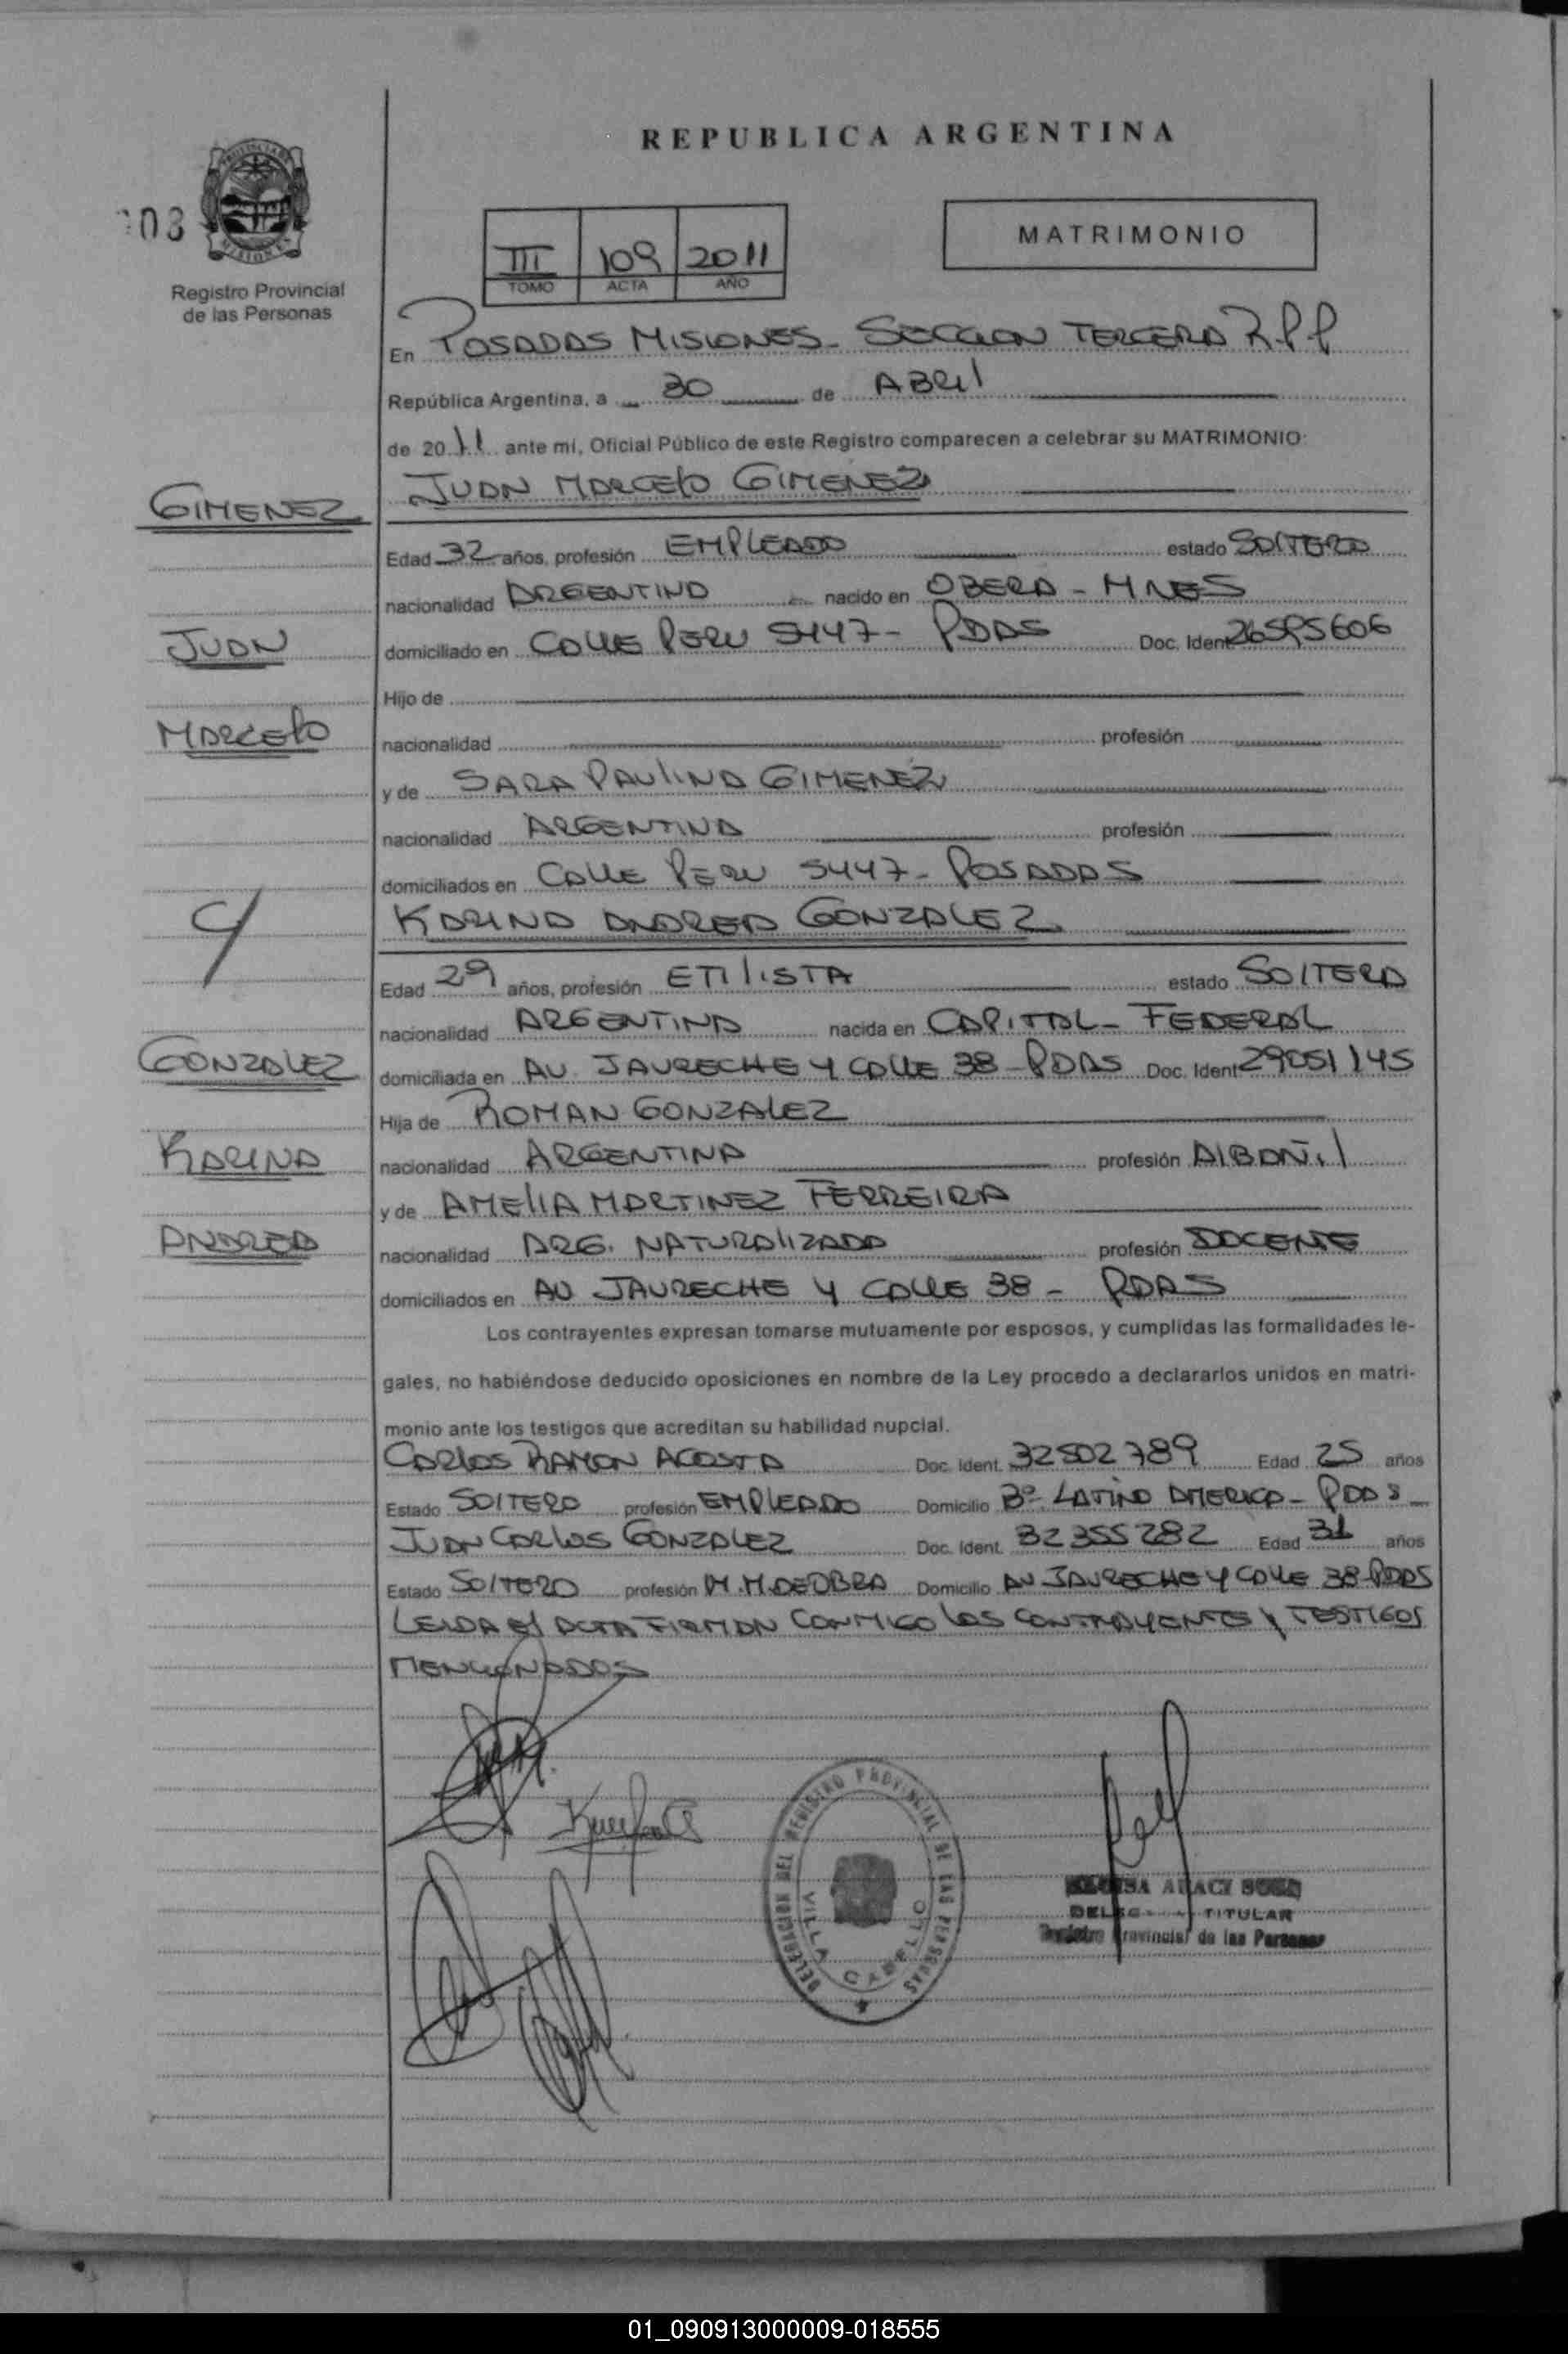 REPUBLICA ARGENTINA
03
MATRIMONIO
III 109 2011
TOMO ACTA AÑO
Registro Provincial
de las Personas
En POSADAS MISIONES - SECCION TERCERA R.P.P
República Argentina, a 30 de ABRIL
de 2011 ante mi, Oficial Público de este Registro comparecen a celebrar su MATRIMONIO:
JUAN MARCELO GIMENEZ
GIMENEZ
Edad 32 años, profesión EMPLEADO estado SOLTERO
nacionalidad ARGENTINO nacido en OBERA - MNES
JUAN
domiciliado en CALLE PERU 5447 - PDAS Doc. Ident 26595606
Hijo de
MARCELO
nacionalidad profesión
y de SARA PAULINA GIMENEZ
nacionalidad ARGENTINA profesión
domiciliados en CALLE PERU 5447 - POSADAS
Y
KARINA ANDREA GONZALEZ
Edad 29 años, profesión ETILISTA estado SOLTERA
nacionalidad ARGENTINA nacida en CAPITAL - FEDERAL
GONZALEZ
domiciliada en AV. JAURECHE Y CALLE 38 - PDAS Doc. Ident 29051145
Hija de ROMAN GONZALEZ
KARINA
nacionalidad ARGENTINA profesión ALBAÑIL
y de AMELIA MARTINEZ FERREIRA
ANDREA
nacionalidad ARG. NATURALIZADA profesión DOCENTE
domiciliados en AV JAURECHE Y CALLE 38 - PDAS
Los contrayentes expresan tomarse mutuamente por esposos, y cumplidas las formalidades le-
gales, no habiéndose deducido oposiciones en nombre de la Ley procedo a declararlos unidos en matri-
monio ante los testigos que acreditan su habilidad nupcial.
CARLOS RAMON ACOSTA Doc. Ident. 32502789 Edad 25 años
Estado SOLTERO profesión EMPLEADO Domicilio Bº LATINO AMERICA - PDAS
JUAN CARLOS GONZALEZ Doc. Ident. 32355282 Edad 31 años
Estado SOLTERO profesión M.M.DE OBRA Domicilio AV JAURECHE Y CALLE 38 PDAS
LEIDA EL ACTA FIRMAN CONMIGO LOS CONTRAYENTES Y TESTIGOS
MENCIONADOS
DELEGACION DEL REGISTRO PROVINCIAL DE LAS PERSONAS
VILLA CABELLO
TITULAR
Registro Provincial de las Personas
01_090913000009-018555